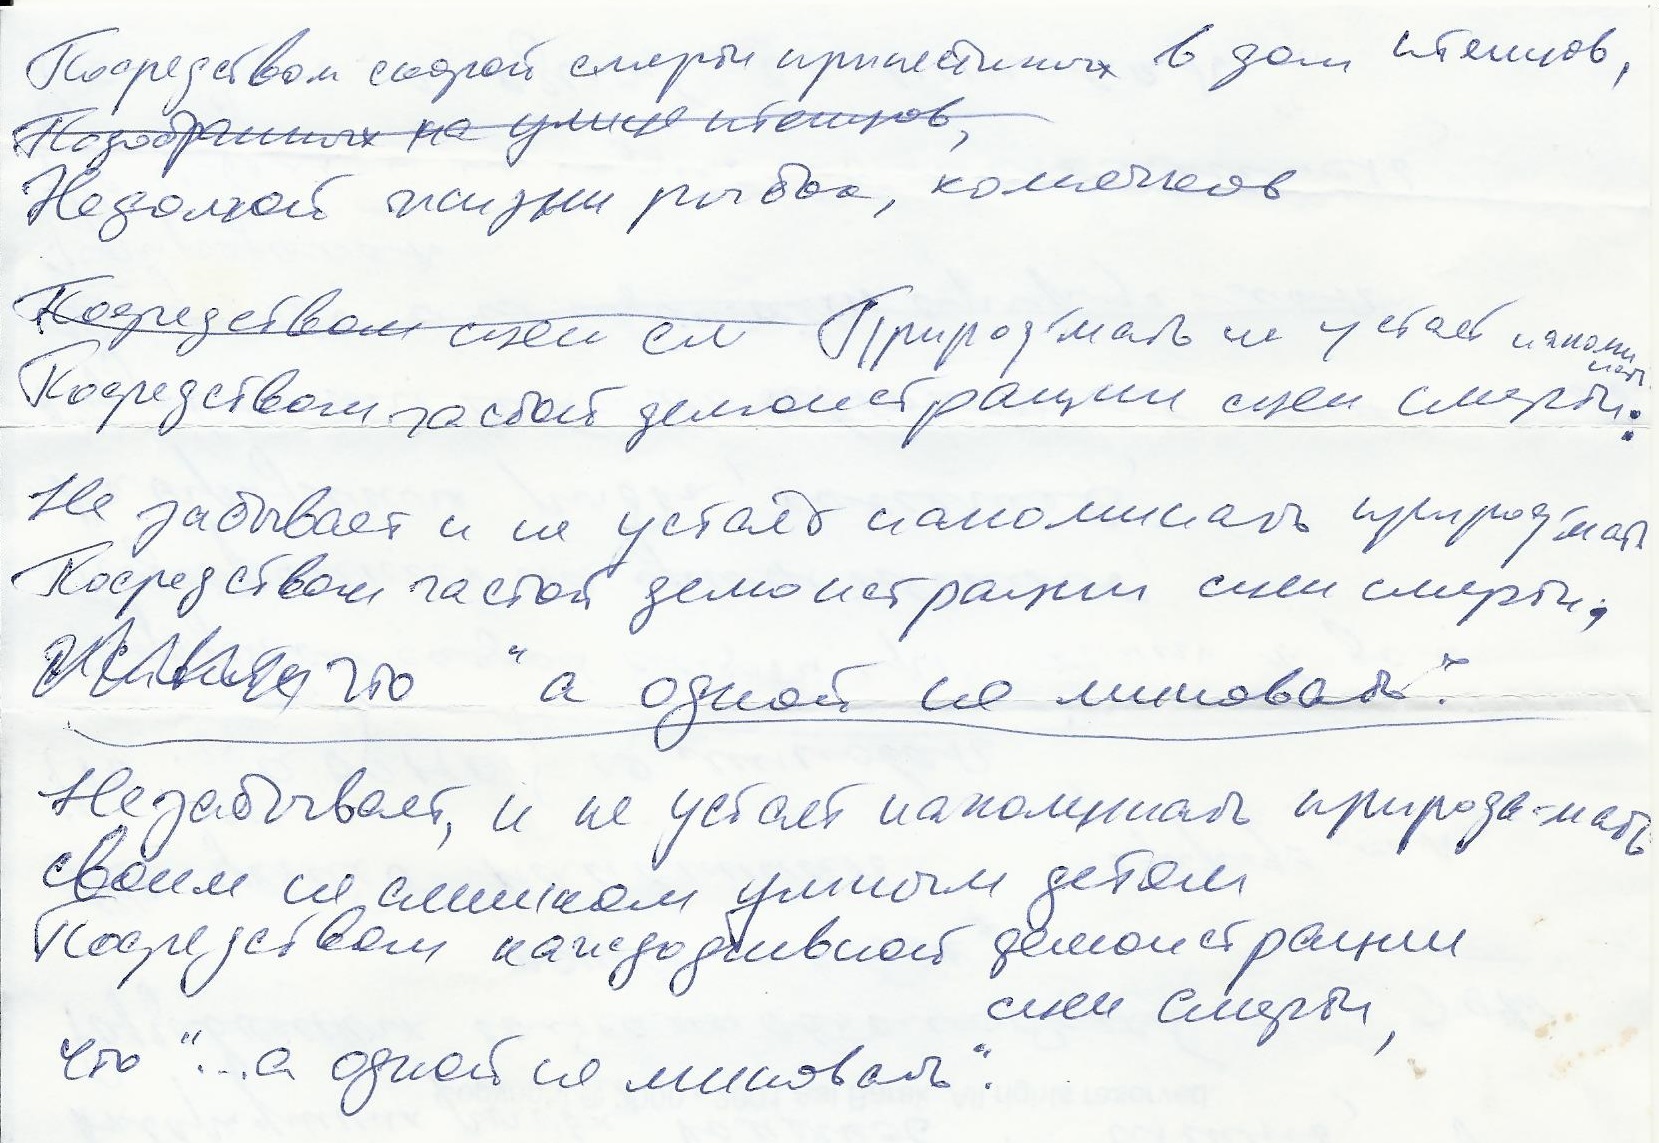 Посредством скорой смерти принесённых в дом птенцов,
Подобранных на улице птенцов,
Недолгой жизни рыбок, хомячков
Посредством сцен см Природ'мать не устаёт напоми
нать
Посредством частой демонстрации сцен смерти:
Не забывает и не устаёт напоминать природ'мать
Посредством частой демонстрации сцен смерти,
что "а одной не миновать".
Не забывает, и не устаёт напоминать природа-мать
своим не слишком умным детям
Посредством каждодневной демонстрации
сцен смерти,
Что "...а одной не миновать".